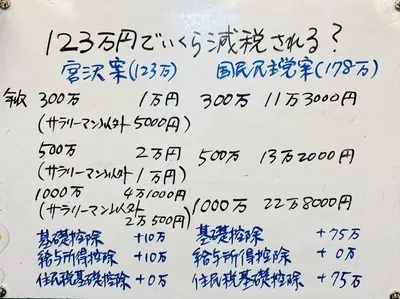 123万円でいくら減税される?
宮沢案(123万) 国民民主党案(178万)
年収 300万 1万円 300万 11万3000円
(サラリーマン以外 5000円)
500万 2万円 500万 13万2000円
(サラリーマン以外 1万円)
1000万 4万1000円 1000万 22万8000円
(サラリーマン以外 2万500円)
基礎控除 +10万 基礎控除 +75万
給与所得控除 +10万 給与所得控除 +0万
住民税基礎控除 +0万 住民税基礎控除 +75万